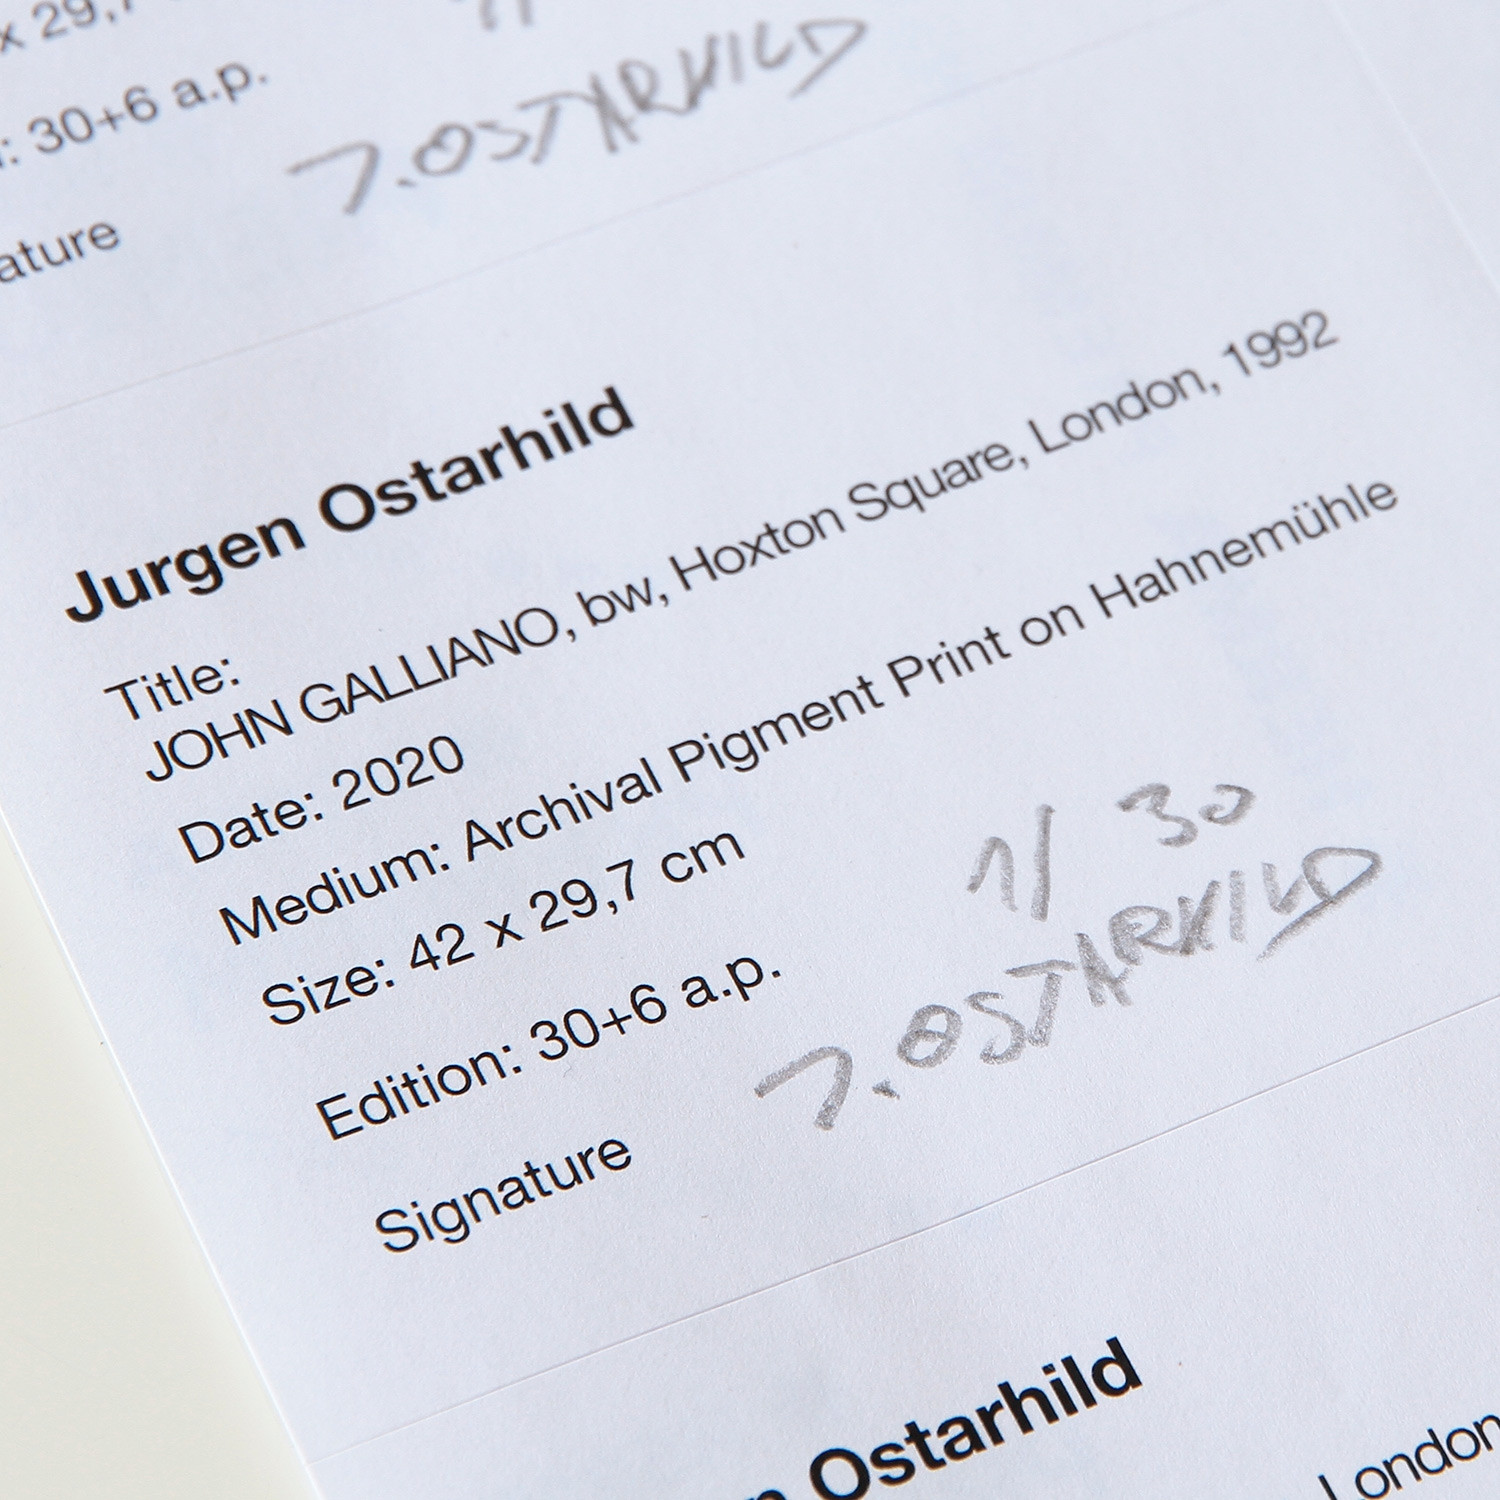 x 29,7
: 30+6 a.p.
J. OSTARHILD
ature
Jurgen Ostarhild
Title:
JOHN GALLIANO, bw, Hoxton Square, London, 1992
Date: 2020
Medium: Archival Pigment Print on Hahnemühle
Size: 42 x 29,7 cm
1/ 30
Edition: 30+6 a.p.
J. OSTARHILD
Signature
n Ostarhild
London